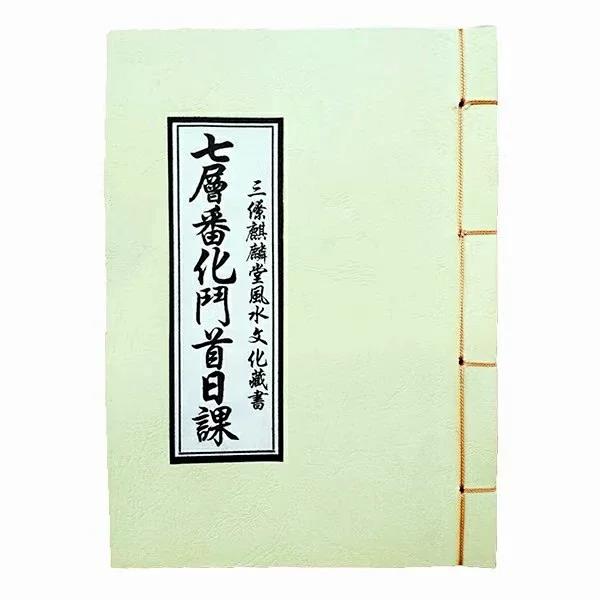 三僚麒麟堂風水文化藏書
七層番化鬥首日課